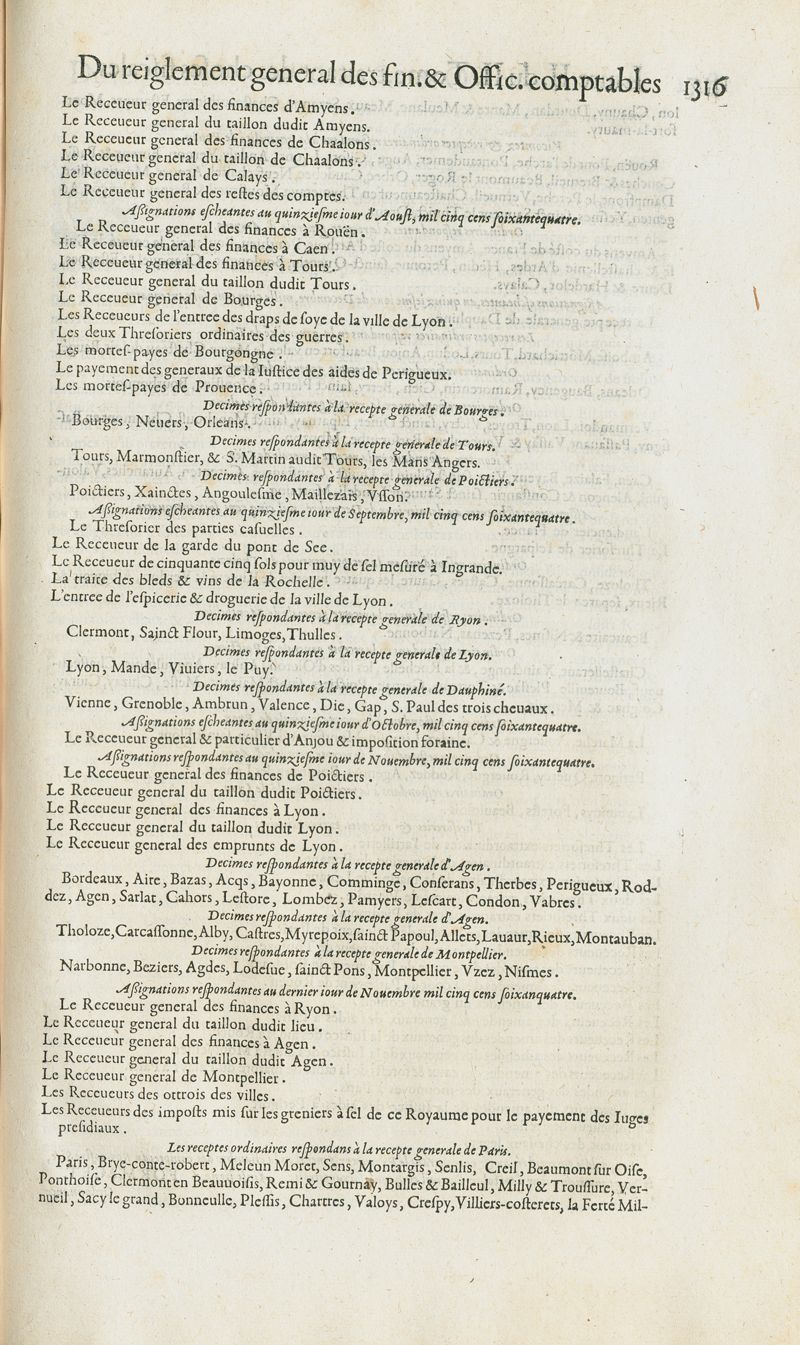 Du reiglement general des fin. & Offic. comptables 1316
Le Receueur general des finances d'Amyens.
Le Receueur general du taillon dudit Amyens.
Le Receueur general des finances de Chaalons.
Le Receueur general du taillon de Chaalons.
Le Receueur general de Calays.
Le Receueur general des reſtes des comptes.
Aſsignations eſcheantes au quinzieſme iour d'Aouſt, mil cinq cens ſoixantequatre.
Le Receueur general des finances à Rouën.
Le Receueur general des finances à Caen.
Le Receueur general des finances à Tours.
Le Receueur general du taillon dudit Tours.
Le Receueur general de Bourges.
Les Receueurs de l'entree des draps de ſoye de la ville de Lyon.
Les deux Threſoriers ordinaires des guerres.
Les morteſ-payes de Bourgongne.
Le payement des generaux de la Iuſtice des aides de Perigueux.
Les morteſ-payes de Prouence.
Decimes reſpondantes à la recepte generale de Bourges.
Bourges, Neuers, Orleans.
Decimes reſpondantes à la recepte generale de Tours.
Tours, Marmonſtier, & S. Martin audit Tours, les Mans Angers.
Decimes reſpondantes à la recepte generale de Poictiers.
Poictiers, Xainctes, Angouleſme, Maillezais, Vſſon.
Aſsignations eſcheantes au quinzieſme iour de Septembre, mil cinq cens ſoixantequatre.
Le Threſorier des parties caſuelles.
Le Receueur de la garde du pont de See.
Le Receueur de cinquante cinq ſols pour muy de ſel meſuré à Ingrande.
La traite des bleds & vins de la Rochelle.
L'entree de l'eſpicerie & droguerie de la ville de Lyon.
Decimes reſpondantes à la recepte generale de Ryon.
Clermont, Sainct Flour, Limoges, Thulles.
Decimes reſpondantes à la recepte generale de Lyon.
Lyon, Mande, Viuiers, le Puy.
Decimes reſpondantes à la recepte generale de Dauphiné.
Vienne, Grenoble, Ambrun, Valence, Die, Gap, S. Paul des trois cheuaux.
Aſsignations eſcheantes au quinzieſme iour d'Octobre, mil cinq cens ſoixantequatre.
Le Receueur general & particulier d'Anjou & impoſition foraine.
Aſsignations reſpondantes au quinzieſme iour de Nouembre, mil cinq cens ſoixantequatre.
Le Receueur general des finances de Poictiers.
Le Receueur general du taillon dudit Poictiers.
Le Receueur general des finances à Lyon.
Le Receueur general du taillon dudit Lyon.
Le Receueur general des emprunts de Lyon.
Decimes reſpondantes à la recepte generale d'Agen.
Bordeaux, Aire, Bazas, Acqs, Bayonne, Comminge, Conſerans, Therbes, Perigueux, Rod-
dez, Agen, Sarlat, Cahors, Leſtore, Lombéz, Pamyers, Leſcart, Condon, Vabres.
Decimes reſpondantes à la recepte generale d'Agen.
Tholoze, Carcaſſonne, Alby, Caſtres, Myrepoix, ſainct Papoul, Allets, Lauaur, Rieux, Montauban.
Decimes reſpondantes à la recepte generale de Montpellier.
Narbonne, Beziers, Agdes, Lodeſue, ſainct Pons, Montpellier, Vzez, Niſmes.
Aſsignations reſpondantes au dernier iour de Nouembre mil cinq cens ſoixanquatre.
Le Receueur general des finances à Ryon.
Le Receueur general du taillon dudit lieu.
Le Receueur general des finances à Agen.
Le Receueur general du taillon dudit Agen.
Le Receueur general de Montpellier.
Les Receueurs des ottrois des villes.
Les Receueurs des impoſts mis ſur les greniers à ſel de ce Royaume pour le payement des Iuges
preſidiaux.
Les receptes ordinaires reſpondans à la recepte generale de Paris.
Paris, Brye-conte-robert, Meleun Moret, Sens, Montargis, Senlis, Creil, Beaumont ſur Oiſe,
Ponthoiſe, Clermont en Beauuoiſis, Remi & Gournay, Bulles & Bailleul, Milly & Trouſſure, Ver-
nueil, Sacy le grand, Bonneulle, Pleſſis, Chartres, Valoys, Creſpy, Villiers-coſterets, la Ferté Mil-